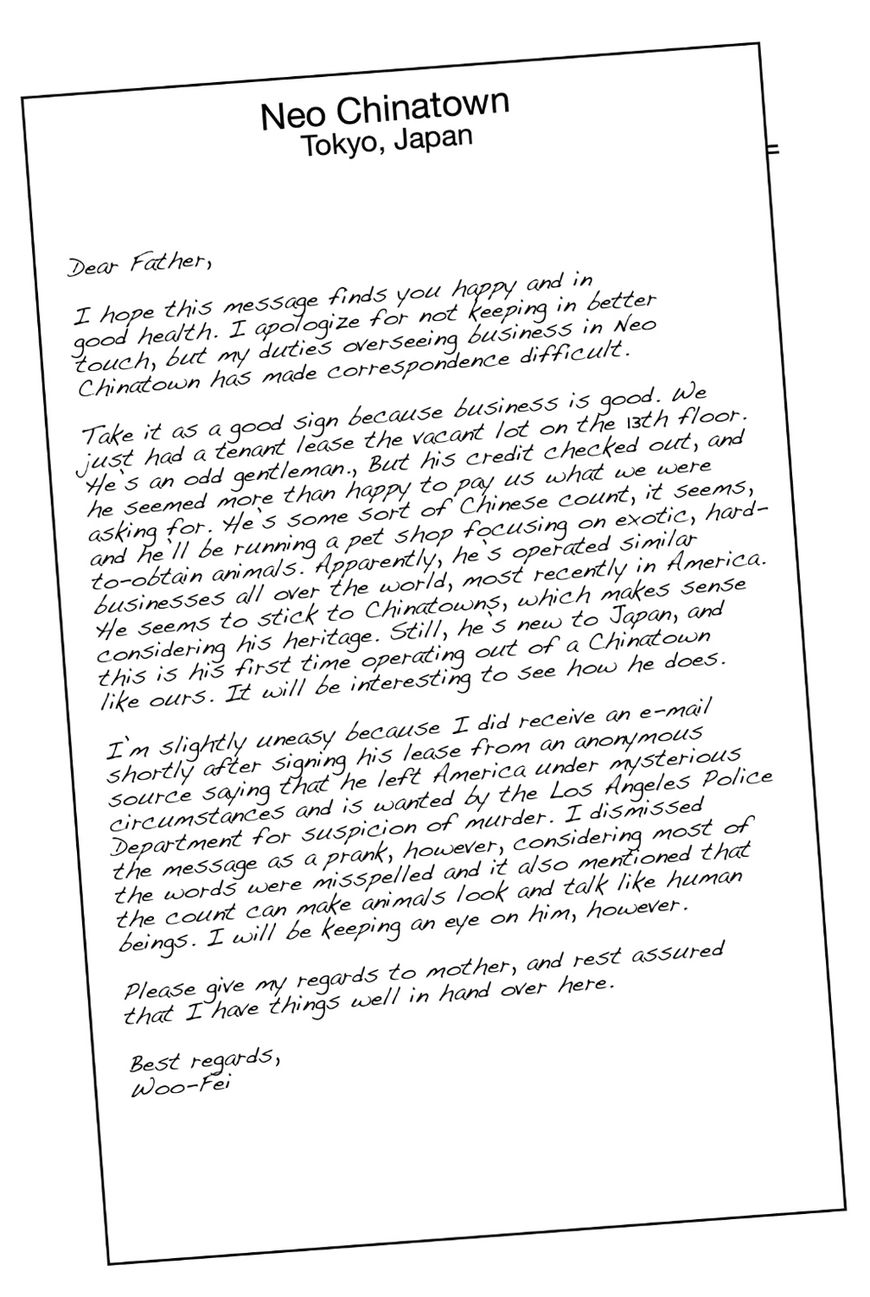 Neo Chinatown
Tokyo, Japan
Dear Father,
I hope this message finds you happy and in
good health. I apologize for not keeping in better
touch, but my duties overseeing business in Neo
Chinatown has made correspondence difficult.
Take it as a good sign because business is good. We
just had a tenant lease the vacant lot on the 13th floor.
He's an odd gentleman., But his credit checked out, and
he seemed more than happy to pay us what we were
asking for. He's some sort of Chinese count, it seems,
and he'll be running a pet shop focusing on exotic, hard-
to-obtain animals. Apparently, he's operated similar
businesses all over the world, most recently in America.
He seems to stick to Chinatowns, which makes sense
considering his heritage. Still, he's new to Japan, and
this is his first time operating out of a Chinatown
like ours. It will be interesting to see how he does.
I'm slightly uneasy because I did receive an e-mail
shortly after signing his lease from an anonymous
source saying that he left America under mysterious
circumstances and is wanted by the Los Angeles Police
Department for suspicion of murder. I dismissed
the message as a prank, however, considering most of
the words were misspelled and it also mentioned that
the count can make animals look and talk like human
beings. I will be keeping an eye on him, however.
Please give my regards to mother, and rest assured
that I have things well in hand over here.
Best regards,
Woo-Fei